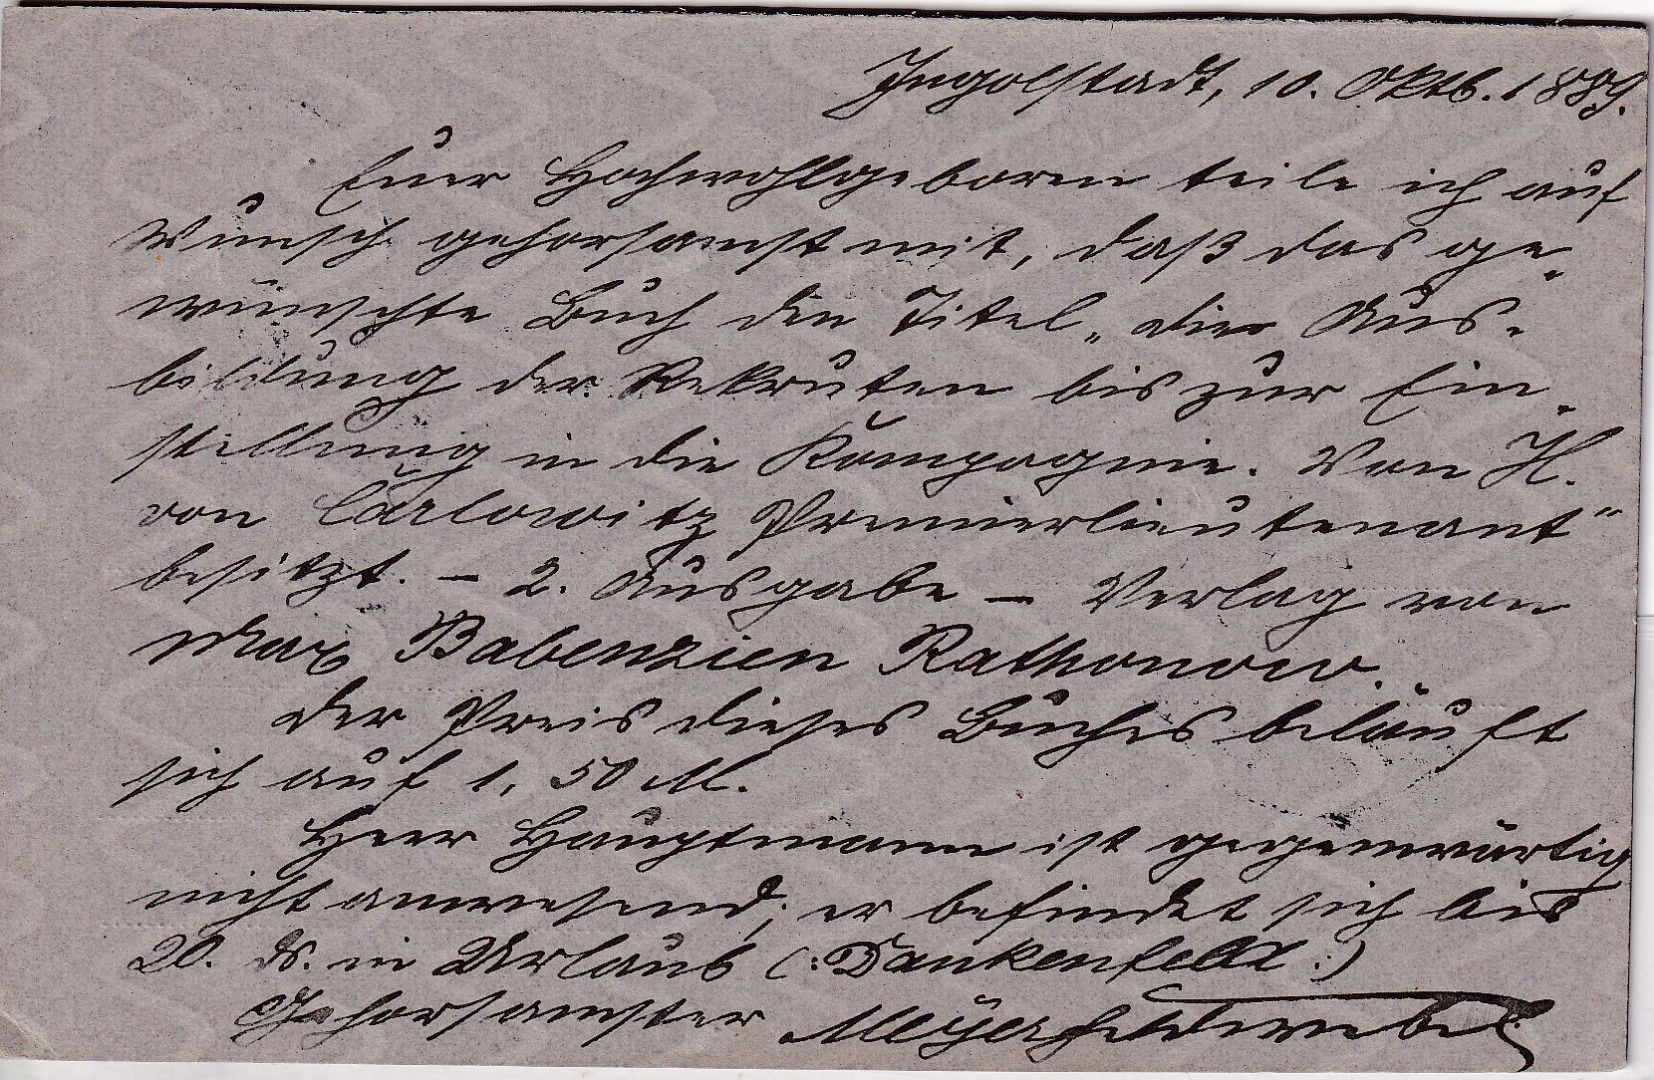 Ingolstadt, 10. Oktb. 1889.
Euer Hochwohlgeboren teile ich auf
Wunsch gehorsamst mit, daß das ge„
wünschte Buch den Titel „die Aus„
bildung der Rekruten bis zur Ein„
stellung in die Kompagnie. Von H.
von Carlowitz Premierlieutenant“
besitzt. – 2. Ausgabe – Verlag von
Max Babenzien Rathonow.
Der Preis dieses Buches beläuft
sich auf 1,50 M.
Herr Hauptmann ist gegenwärtig
nicht anwesend; er befindet sich bis
20. ds. in Urlaub (: Dankenfeld :)
Gehorsamster Meyer Feldwebel